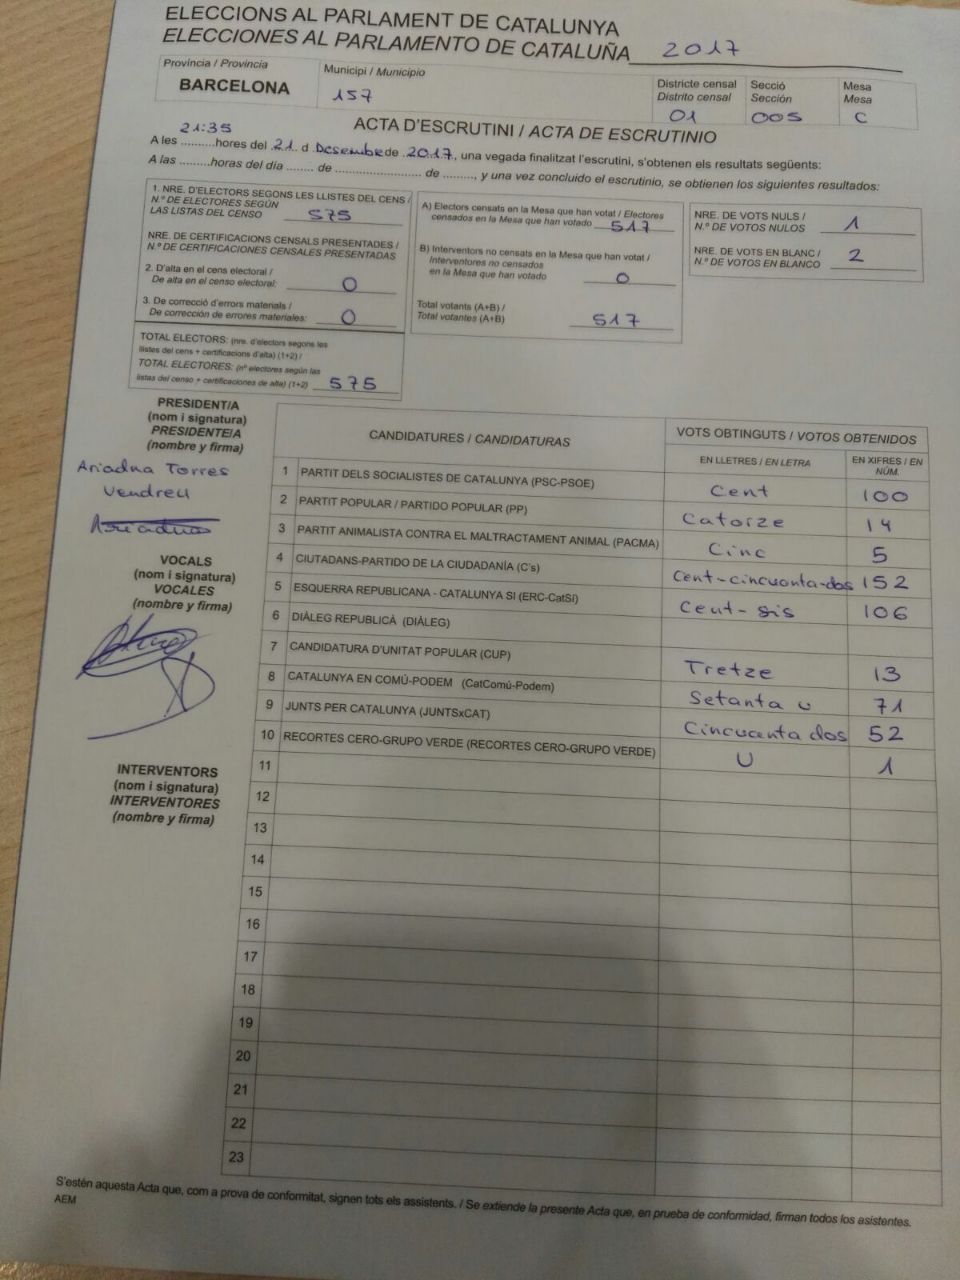 ELECCIONS AL PARLAMENT DE CATALUNYA
ELECCIONES AL PARLAMENTO DE CATALUÑA 2017
Província / Provincia
BARCELONA
Municipi / Municipio
157
Districte censal
Distrito censal
01
Secció
Sección
005
Mesa
Mesa
C
ACTA D'ESCRUTINI / ACTA DE ESCRUTINIO
21:35
A les ..........hores del .21. d Desembre de .2017., una vegada finalitzat l'escrutini, s'obtenen els resultats següents:
A las .........horas del día ....... de ......................... de ........., y una vez concluido el escrutinio, se obtienen los siguientes resultados:
1. NRE. D'ELECTORS SEGONS LES LLISTES DEL CENS /
N.º DE ELECTORES SEGÚN
LAS LISTAS DEL CENSO 575
NRE. DE CERTIFICACIONS CENSALS PRESENTADES /
N.º DE CERTIFICACIONES CENSALES PRESENTADAS
2. D'alta en el cens electoral /
De alta en el censo electoral: 0
3. De correcció d'errors materials /
De corrección de errores materiales: 0
TOTAL ELECTORS: (nre. d'electors segons les
llistes del cens + certificacions d'alta) (1+2) /
TOTAL ELECTORES: (nº electores según las
listas del censo + certificaciones de alta) (1+2) 575
A) Electors censats en la Mesa que han votat / Electores
censados en la Mesa que han votado 517
B) Interventors no censats en la Mesa que han votat /
Interventores no censados
en la Mesa que han votado 0
Total votants (A+B) /
Total votantes (A+B) 517
NRE. DE VOTS NULS /
N.º DE VOTOS NULOS 1
NRE. DE VOTS EN BLANC /
N.º DE VOTOS EN BLANCO 2
PRESIDENT/A
(nom i signatura)
PRESIDENTE/A
(nombre y firma)
Ariadna Torres
Vendreu
Ariadna
VOCALS
(nom i signatura)
VOCALES
(nombre y firma)
INTERVENTORS
(nom i signatura)
INTERVENTORES
(nombre y firma)
CANDIDATURES / CANDIDATURAS
VOTS OBTINGUTS / VOTOS OBTENIDOS
EN LLETRES / EN LETRA
EN XIFRES / EN
NÚM.
1 PARTIT DELS SOCIALISTES DE CATALUNYA (PSC-PSOE) Cent 100
2 PARTIT POPULAR / PARTIDO POPULAR (PP) Catorze 14
3 PARTIT ANIMALISTA CONTRA EL MALTRACTAMENT ANIMAL (PACMA) Cinc 5
4 CIUTADANS-PARTIDO DE LA CIUDADANÍA (C's) Cent-cincuanta-dos 152
5 ESQUERRA REPUBLICANA - CATALUNYA SI (ERC-CatSí) Cent-sis 106
6 DIÀLEG REPUBLICÀ (DIÀLEG)
7 CANDIDATURA D'UNITAT POPULAR (CUP) Tretze 13
8 CATALUNYA EN COMÚ-PODEM (CatComú-Podem) Setanta u 71
9 JUNTS PER CATALUNYA (JUNTSxCAT) Cincuanta dos 52
10 RECORTES CERO-GRUPO VERDE (RECORTES CERO-GRUPO VERDE) U 1
11
12
13
14
15
16
17
18
19
20
21
22
23
S'estén aquesta Acta que, com a prova de conformitat, signen tots els assistents. / Se extiende la presente Acta que, en prueba de conformidad, firman todos los asistentes.
AEM